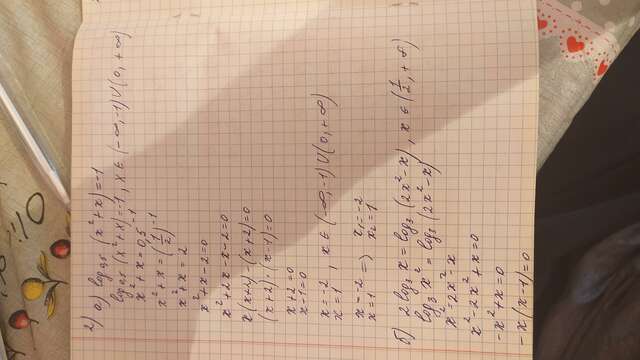 2) а) log₀,₅ (x²+x)=-1
log₀,₅ (x²+x)=-1, x∈(-∞,-1)∪(0,+∞)
x²+x=0,5⁻¹
x²+x=(1/2)⁻¹
x²+x=2
x²+x-2=0
x²+2x-x-2=0
x(x+2)-(x+2)=0
(x+2)·(x-1)=0
x+2=0
x-1=0
x=-2
x=1, x∈(-∞,-1)∪(0,+∞)
x=-2
x=1 => x₁=-2
x₂=1
б) 2log₃x=log₃(2x²-x), x∈(1/2,+∞)
log₃x²=log₃(2x²-x)
x²=2x²-x
x²-2x²+x=0
-x²+x=0
-x(x-1)=0